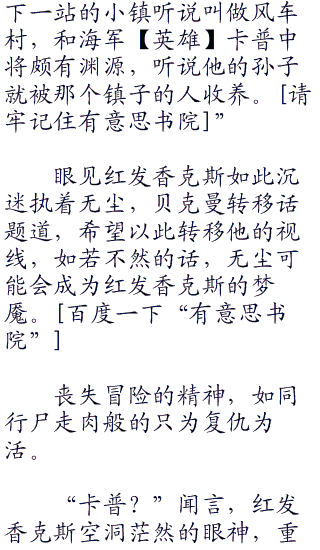 下一站的小镇听说叫做风车
村，和海军【英雄】卡普中
将颇有渊源，听说他的孙子
就被那个镇子的人收养。[请
牢记住有意思书院]”
眼见红发香克斯如此沉
迷执着无尘，贝克曼转移话
题道，希望以此转移他的视
线，如若不然的话，无尘可
能会成为红发香克斯的梦
魇。[百度一下“有意思书
院”]
丧失冒险的精神，如同
行尸走肉般的只为复仇为
活。
“卡普？”闻言，红发
香克斯空洞茫然的眼神，重